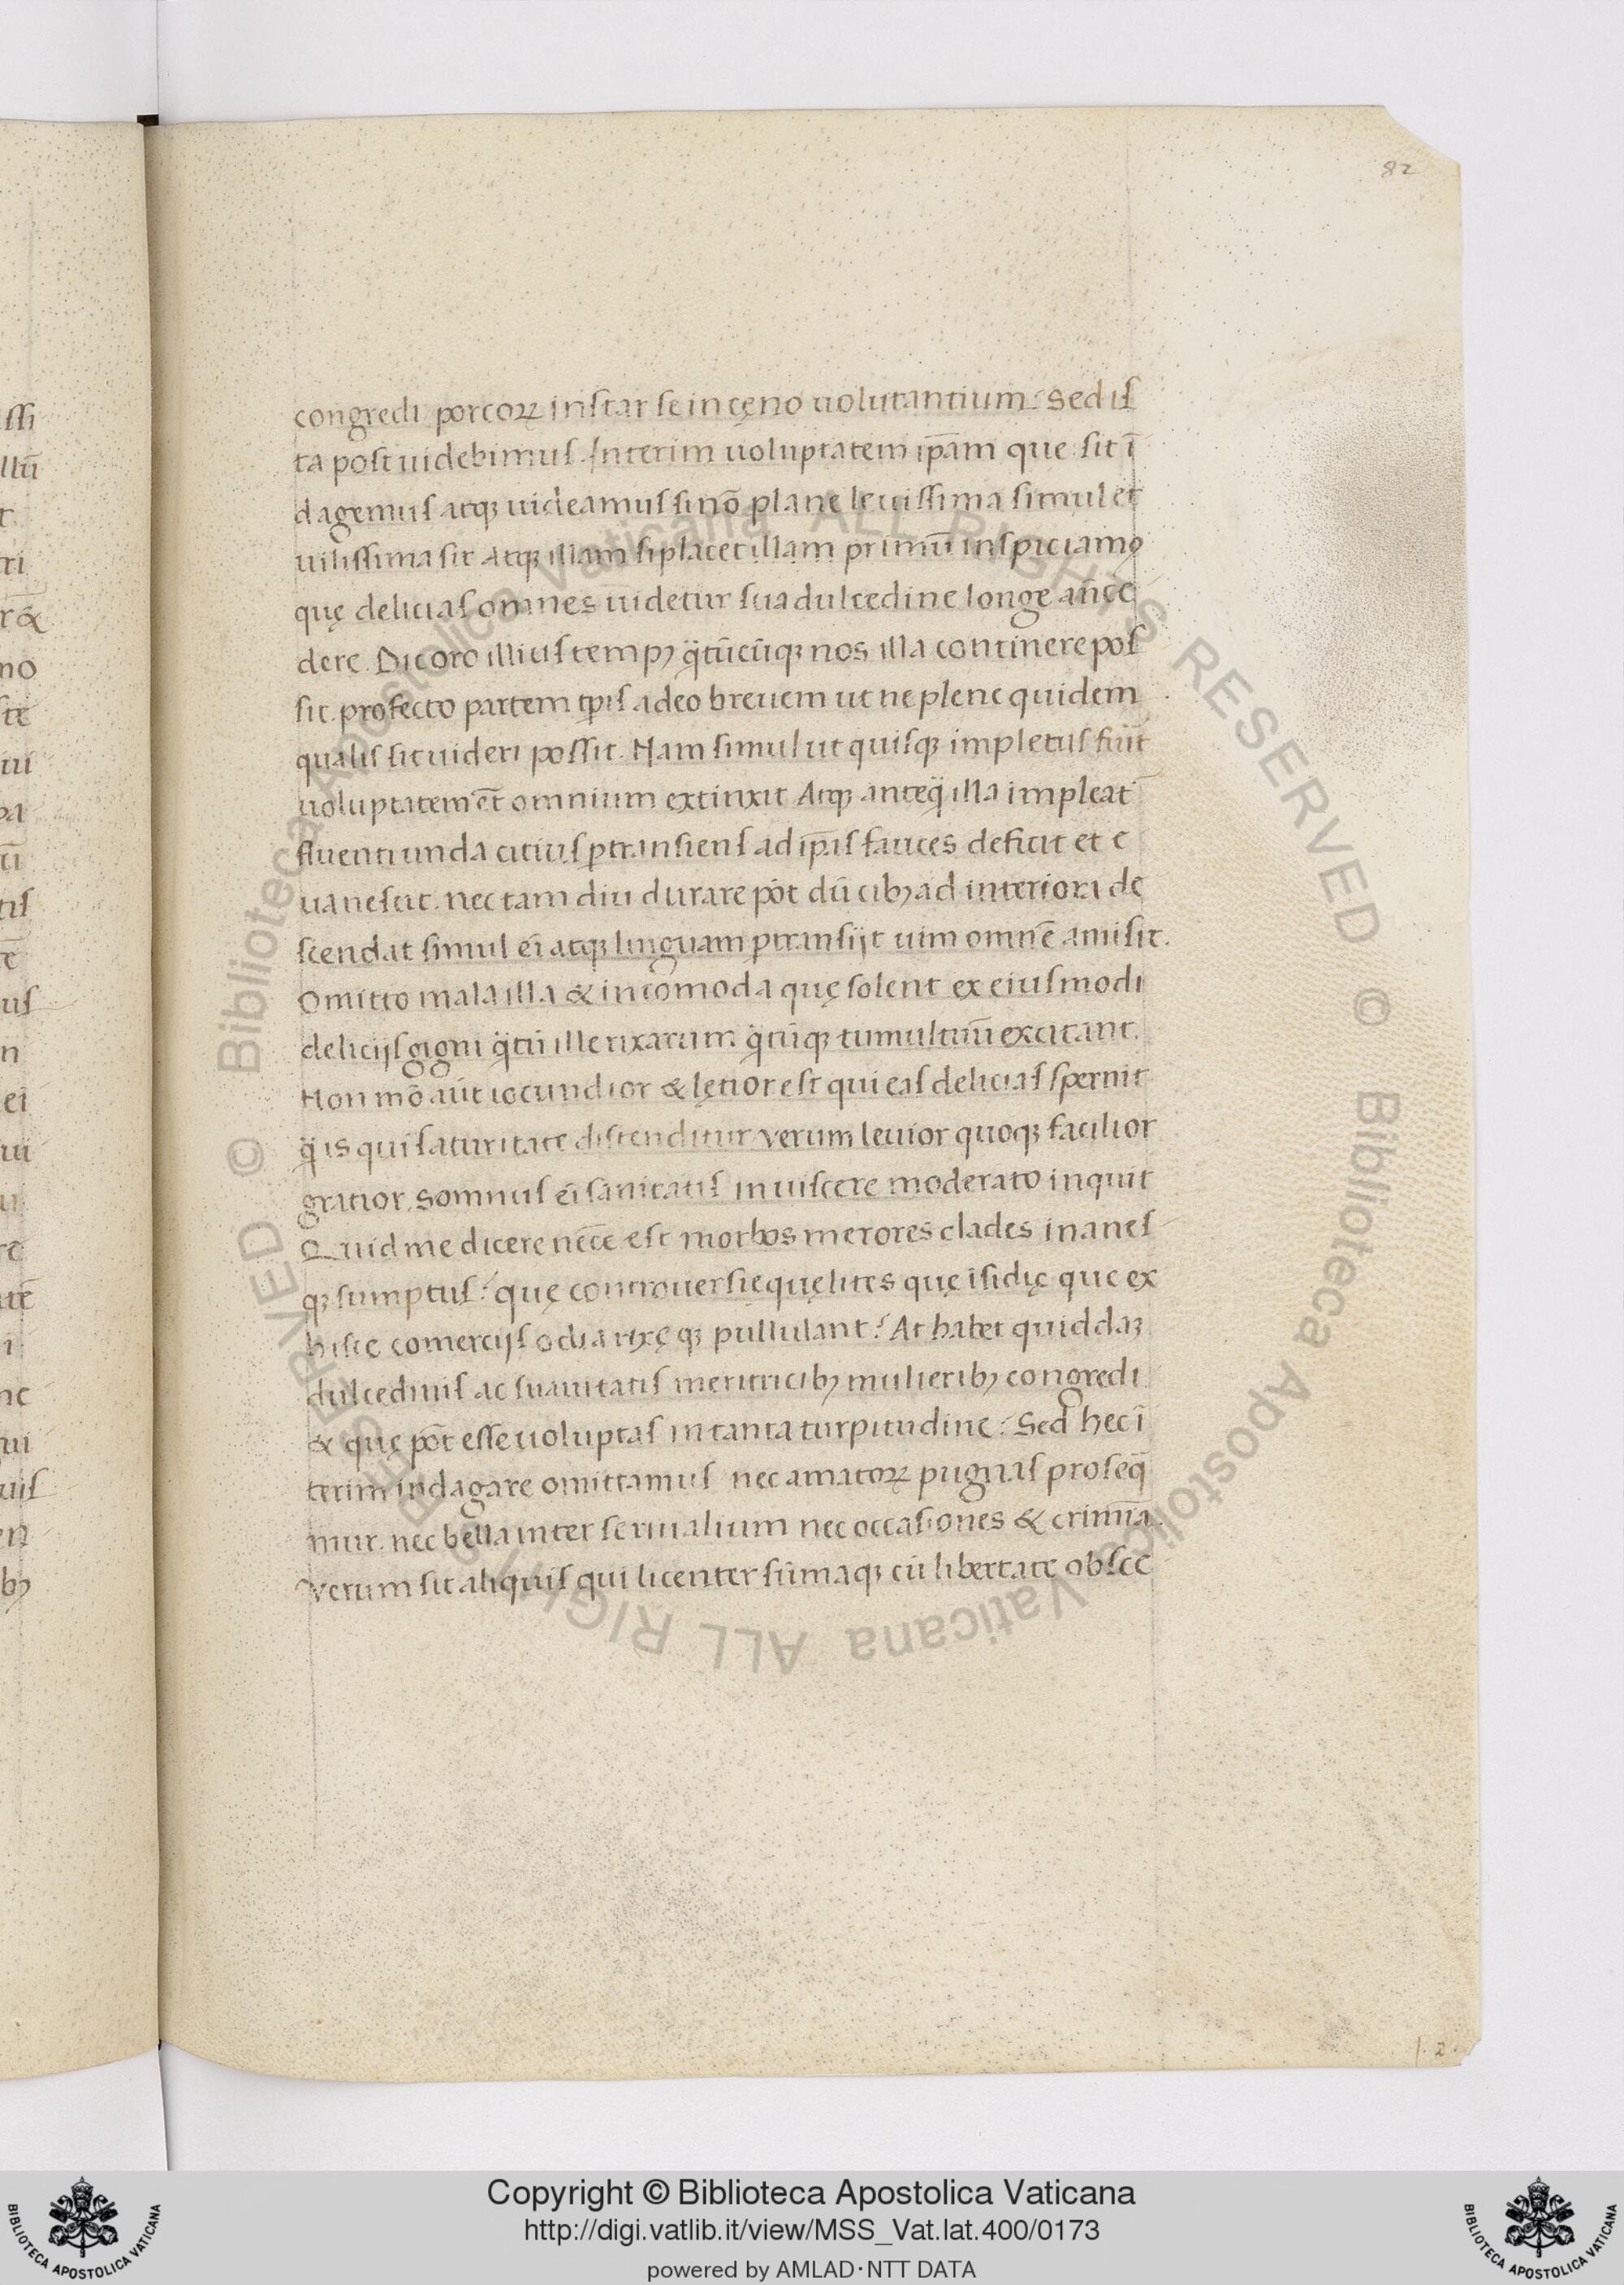 82
congredi porcoꝝ inſtar ſe in cęno uolutantium? Sed iſ
ta poſt uidebimuſ. Interim uoluptatem ip̄am que ſit ī
dagemuſ atqꝫ uideamuſ ſi nō plane leuiſſima ſimul et
uiliſſima ſit Atqꝫ illam ſi placet illam primū inſpiciamꝰ
quę deliciaſ omnes uidetur ſua dulcedine longe ān̄ce
dere. Dico ro illiuſ tempꝫ qͣ̄tūcūqꝫ nos illa continere poſ
ſit. profecto partem tp̄iſ adeo breuem ut ne plene quidem
qualiſ ſit uideri poſſit. Nam ſimul ut quiſqꝫ impletuſ fūit
uoluptatem et̄ omnium extinxit Atqꝫ anteqͣ̄ illa impleat̄
fluenti unda citiuſ ꝑtranſienſ ad ip̄aſ fauces deficit et e
uaneſcit. nec tam diu durare pōt dū cibꝫ ad interiora de
ſcendat ſimul ei atqꝫ linguam ꝑtranſijt uim omnē amiſit.
Omitto mala illa & incomoda quę ſolent ex eiuſmodi
delicijſ gigni qͣ̄tū ille rixarum qͣ̄tūqꝫ tumultuū excitant.
Non mō aūt iocundior & lętior eſt qui eaſ deliciaſ ſpernit
qͣ̄ is qui ſaturitate diſtenditur verum leuior quoqꝫ facilior
gratior. Somnuſ ei ſanitatiſ in uiſcere moderato inquit
Quid me dicere nēce eſt morbos merores clades inaneſ
qꝫ ſumptuſ? quę controuerſię quę lites quę īſidię que ex
hiſce comercijſ odia rixę qꝫ pullulant? At habet quiddaꝫ
dulcediniſ ac ſuauitatiſ meritricibꝫ mulieribꝫ congredi
& quę pōt eſſe uoluptaſ in tanta turpitudine? Sed hec ī
terim indagare omittamuſ nec amatoꝝ pugnaſ proſeq̄
mur. nec bella inter ſe riualium nec occaſiones & crimīa.
Verum ſit aliquiſ qui licenter ſūmaqꝫ cū libertate obſce
1.2.
Copyright © Biblioteca Apostolica Vaticana
http://digi.vatlib.it/view/MSS_Vat.lat.400/0173
powered by AMLAD·NTT DATA